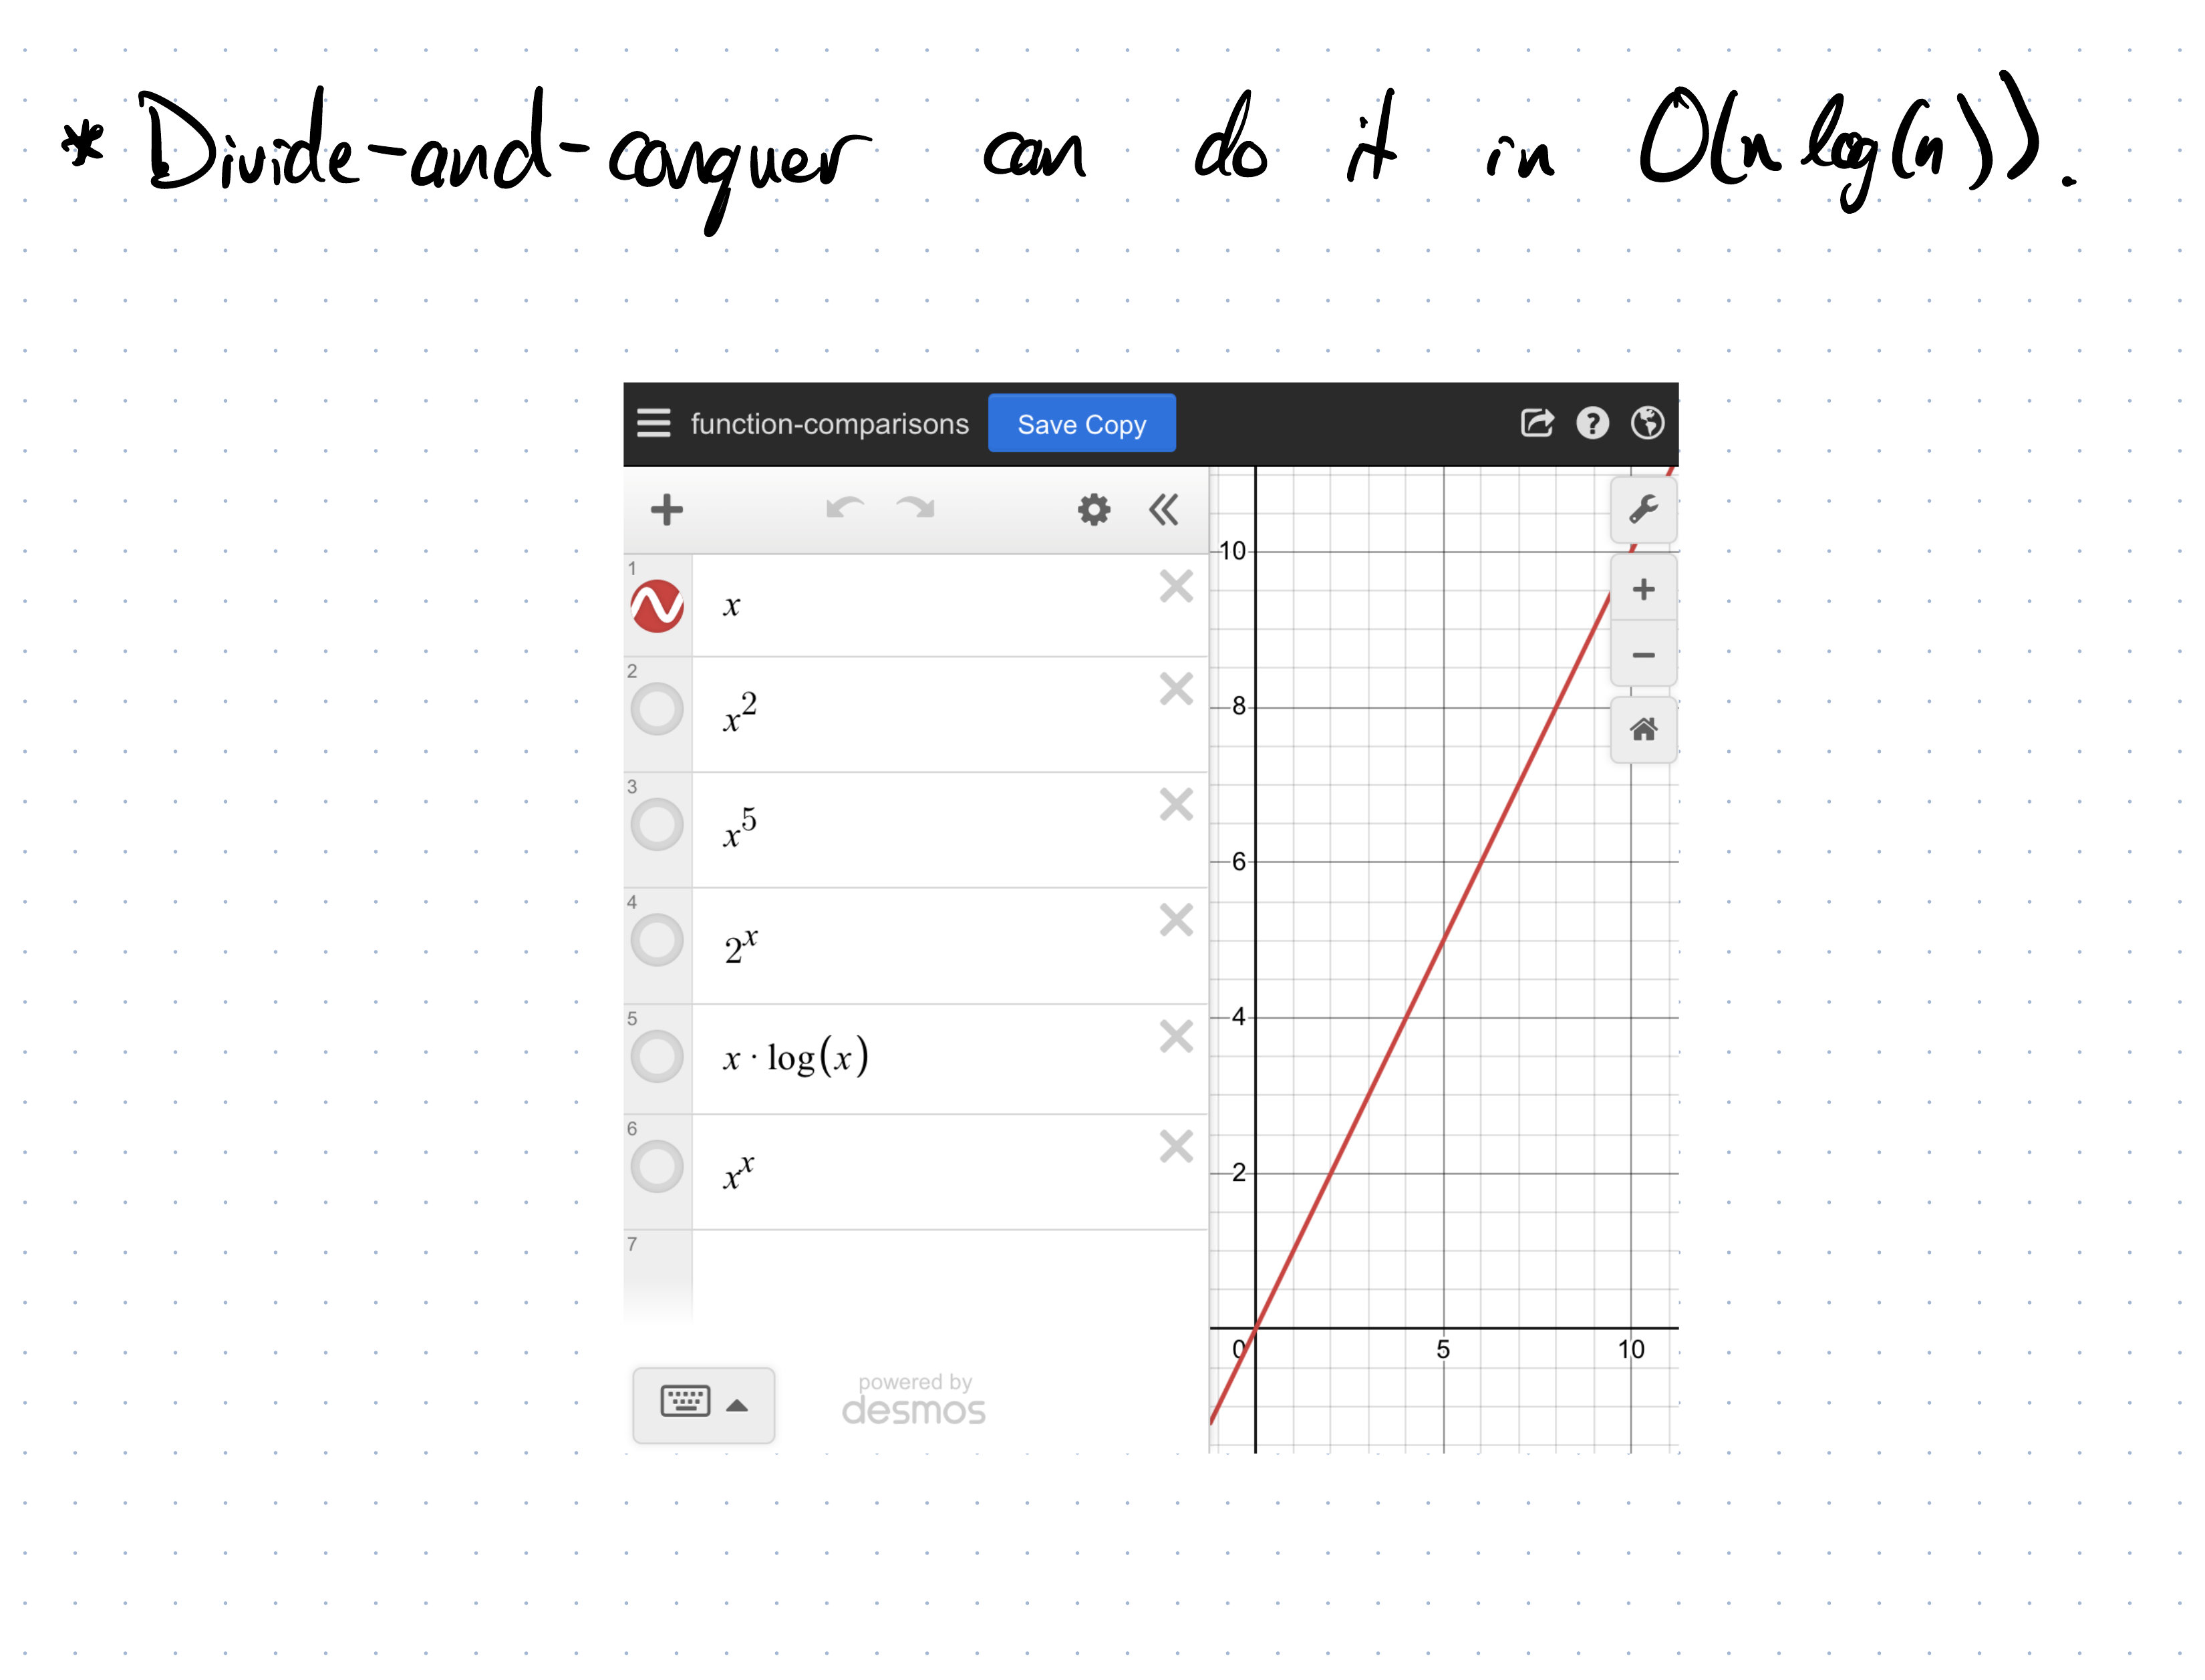 * Divide-and-conquer can do it in O(n log(n)).
function-comparisons Save Copy
1 x
2 x^2
3 x^5
4 2^x
5 x · log(x)
6 x^x
7
powered by
desmos
10
8
6
4
2
0 5 10